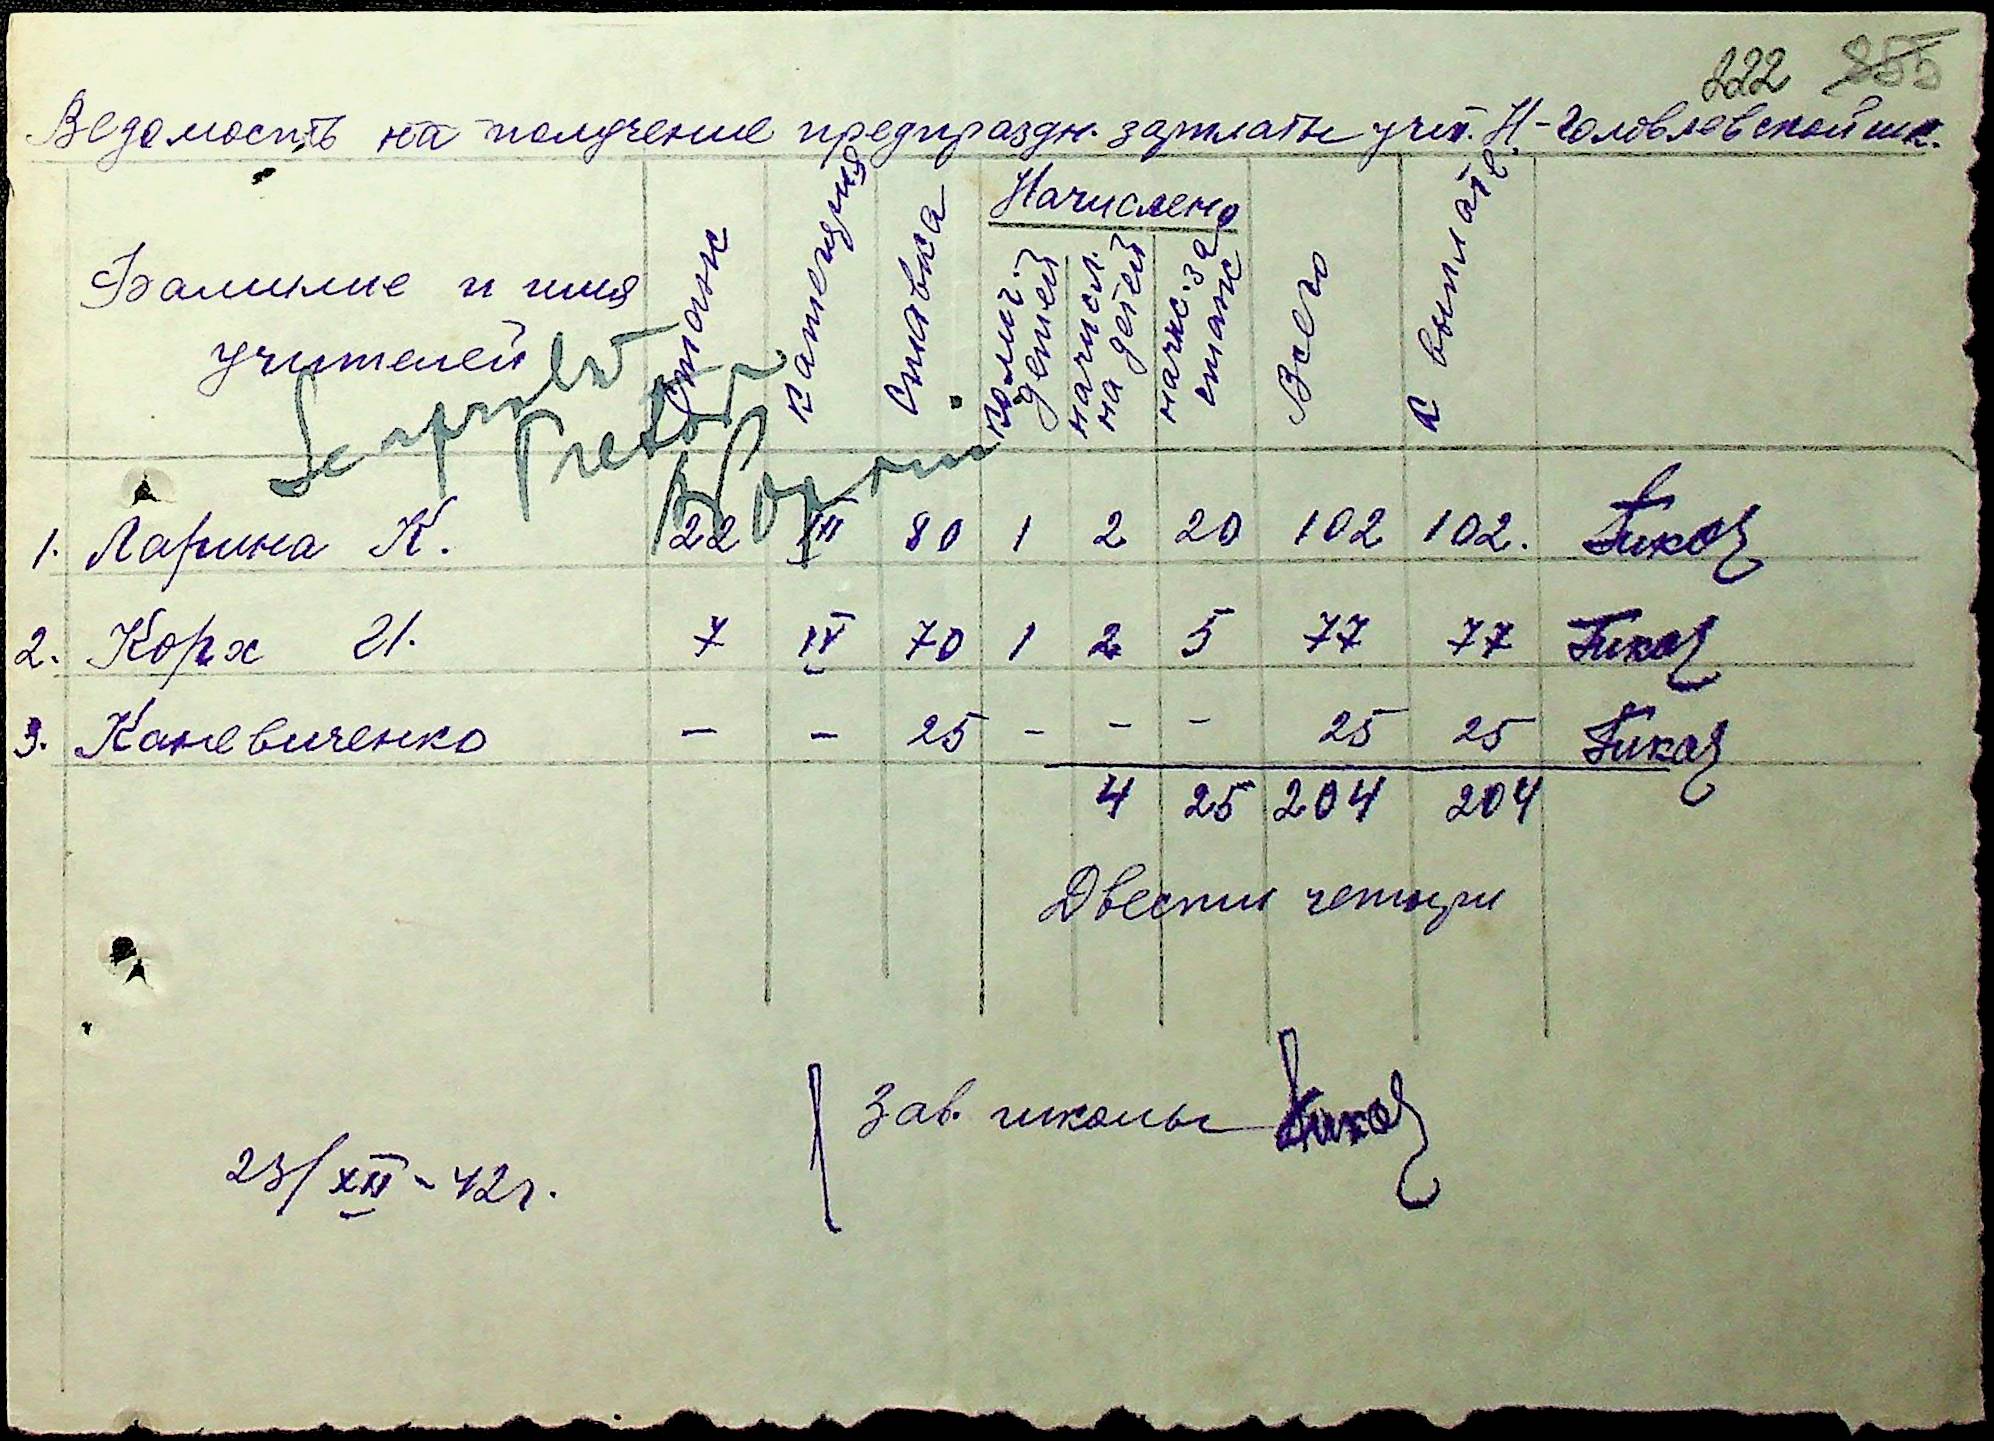 222 255
Ведомость на получение предпраздн. зарплаты учит. Н-Головлевской шк.
Фамилие и имя учителей
стаж
категория
ставка
Начислено
колич. детей
начисл. на детей
начис. за стаж
Всего
к выплате
1. Ларина К. 22 III 80 1 2 20 102 102.
2. Корж И. 7 IV 70 1 2 5 77 77
3. Каневиченко - - 25 - - - 25 25
4 25 204 204
Двести четыри
Зав. школы
23/XII-42г.